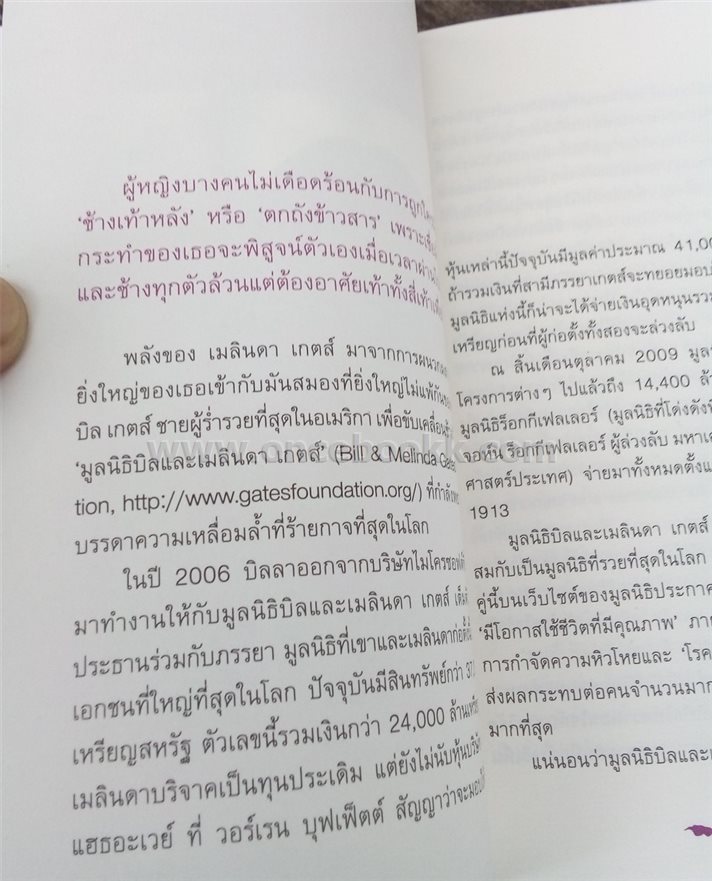 ผู้หญิงบางคนไม่เดือดร้อนกับการถูก
‘ช้างเท้าหลัง’ หรือ ‘ตกถังข้าวสาร’ เพราะ
กระทำของเธอจะพิสูจน์ตัวเองเมื่อเวลา
และช้างทุกตัวล้วนแต่ต้องอาศัยเท้าทั้งสี่
พลังของ เมลินดา เกตส์ มาจากการ
ยิ่งใหญ่ของเธอเข้ากับมันสมองที่ยิ่งใหญ่ไม่แพ้กัน
บิล เกตส์ ชายผู้ร่ำรวยที่สุดในอเมริกา เพื่อขับเคลื่อน
‘มูลนิธิบิลและเมลินดา เกตส์’ (Bill & Melinda
tion, http://www.gatesfoundation.org/) ที่กำลัง
บรรดาความเหลื่อมล้ำที่ร้ายกาจที่สุดในโลก
ในปี 2006 บิลลาออกจากบริษัทไมโครซอฟต์
มาทำงานให้กับมูลนิธิบิลและเมลินดา เกตส์
ประธานร่วมกับภรรยา มูลนิธิที่เขาและเมลินดาก่อตั้ง
เอกชนที่ใหญ่ที่สุดในโลก ปัจจุบันมีสินทรัพย์กว่า
เหรียญสหรัฐ ตัวเลขนี้รวมเงินกว่า 24,000 ล้าน
เมลินดาบริจาคเป็นทุนประเดิม แต่ยังไม่นับหุ้น
แฮธอะเวย์ ที่ วอร์เรน บุฟเฟ็ตต์ สัญญาว่าจะ
หุ้นเหล่านี้ปัจจุบันมีมูลค่าประมาณ
ถ้ารวมเงินที่สามีภรรยาเกตส์จะทยอยมอบ
มูลนิธิแห่งนี้ก็น่าจะได้จ่ายเงินอุดหนุนรวม
เหรียญก่อนที่ผู้ก่อตั้งทั้งสองจะล่วงลับ
ณ สิ้นเดือนตุลาคม 2009
โครงการต่างๆ ไปแล้วถึง 14,400
มูลนิธิร็อกกีเฟลเลอร์ (มูลนิธิที่โด่งดัง
จอห์น ร็อกกีเฟลเลอร์ ผู้ล่วงลับ
ศาสตร์ประเทศ) จ่ายมาทั้งหมดตั้งแ
1913
มูลนิธิบิลและเมลินดา เกตส์
สมกับเป็นมูลนิธิที่รวยที่สุดในโลก
คู่นี้บนเว็บไซต์ของมูลนิธิประกาศ
‘มีโอกาสใช้ชีวิตที่มีคุณภาพ’
การกำจัดความหิวโหยและ ‘โรค
ส่งผลกระทบต่อคนจำนวนมาก
มากที่สุด
แน่นอนว่ามูลนิธิบิลและ